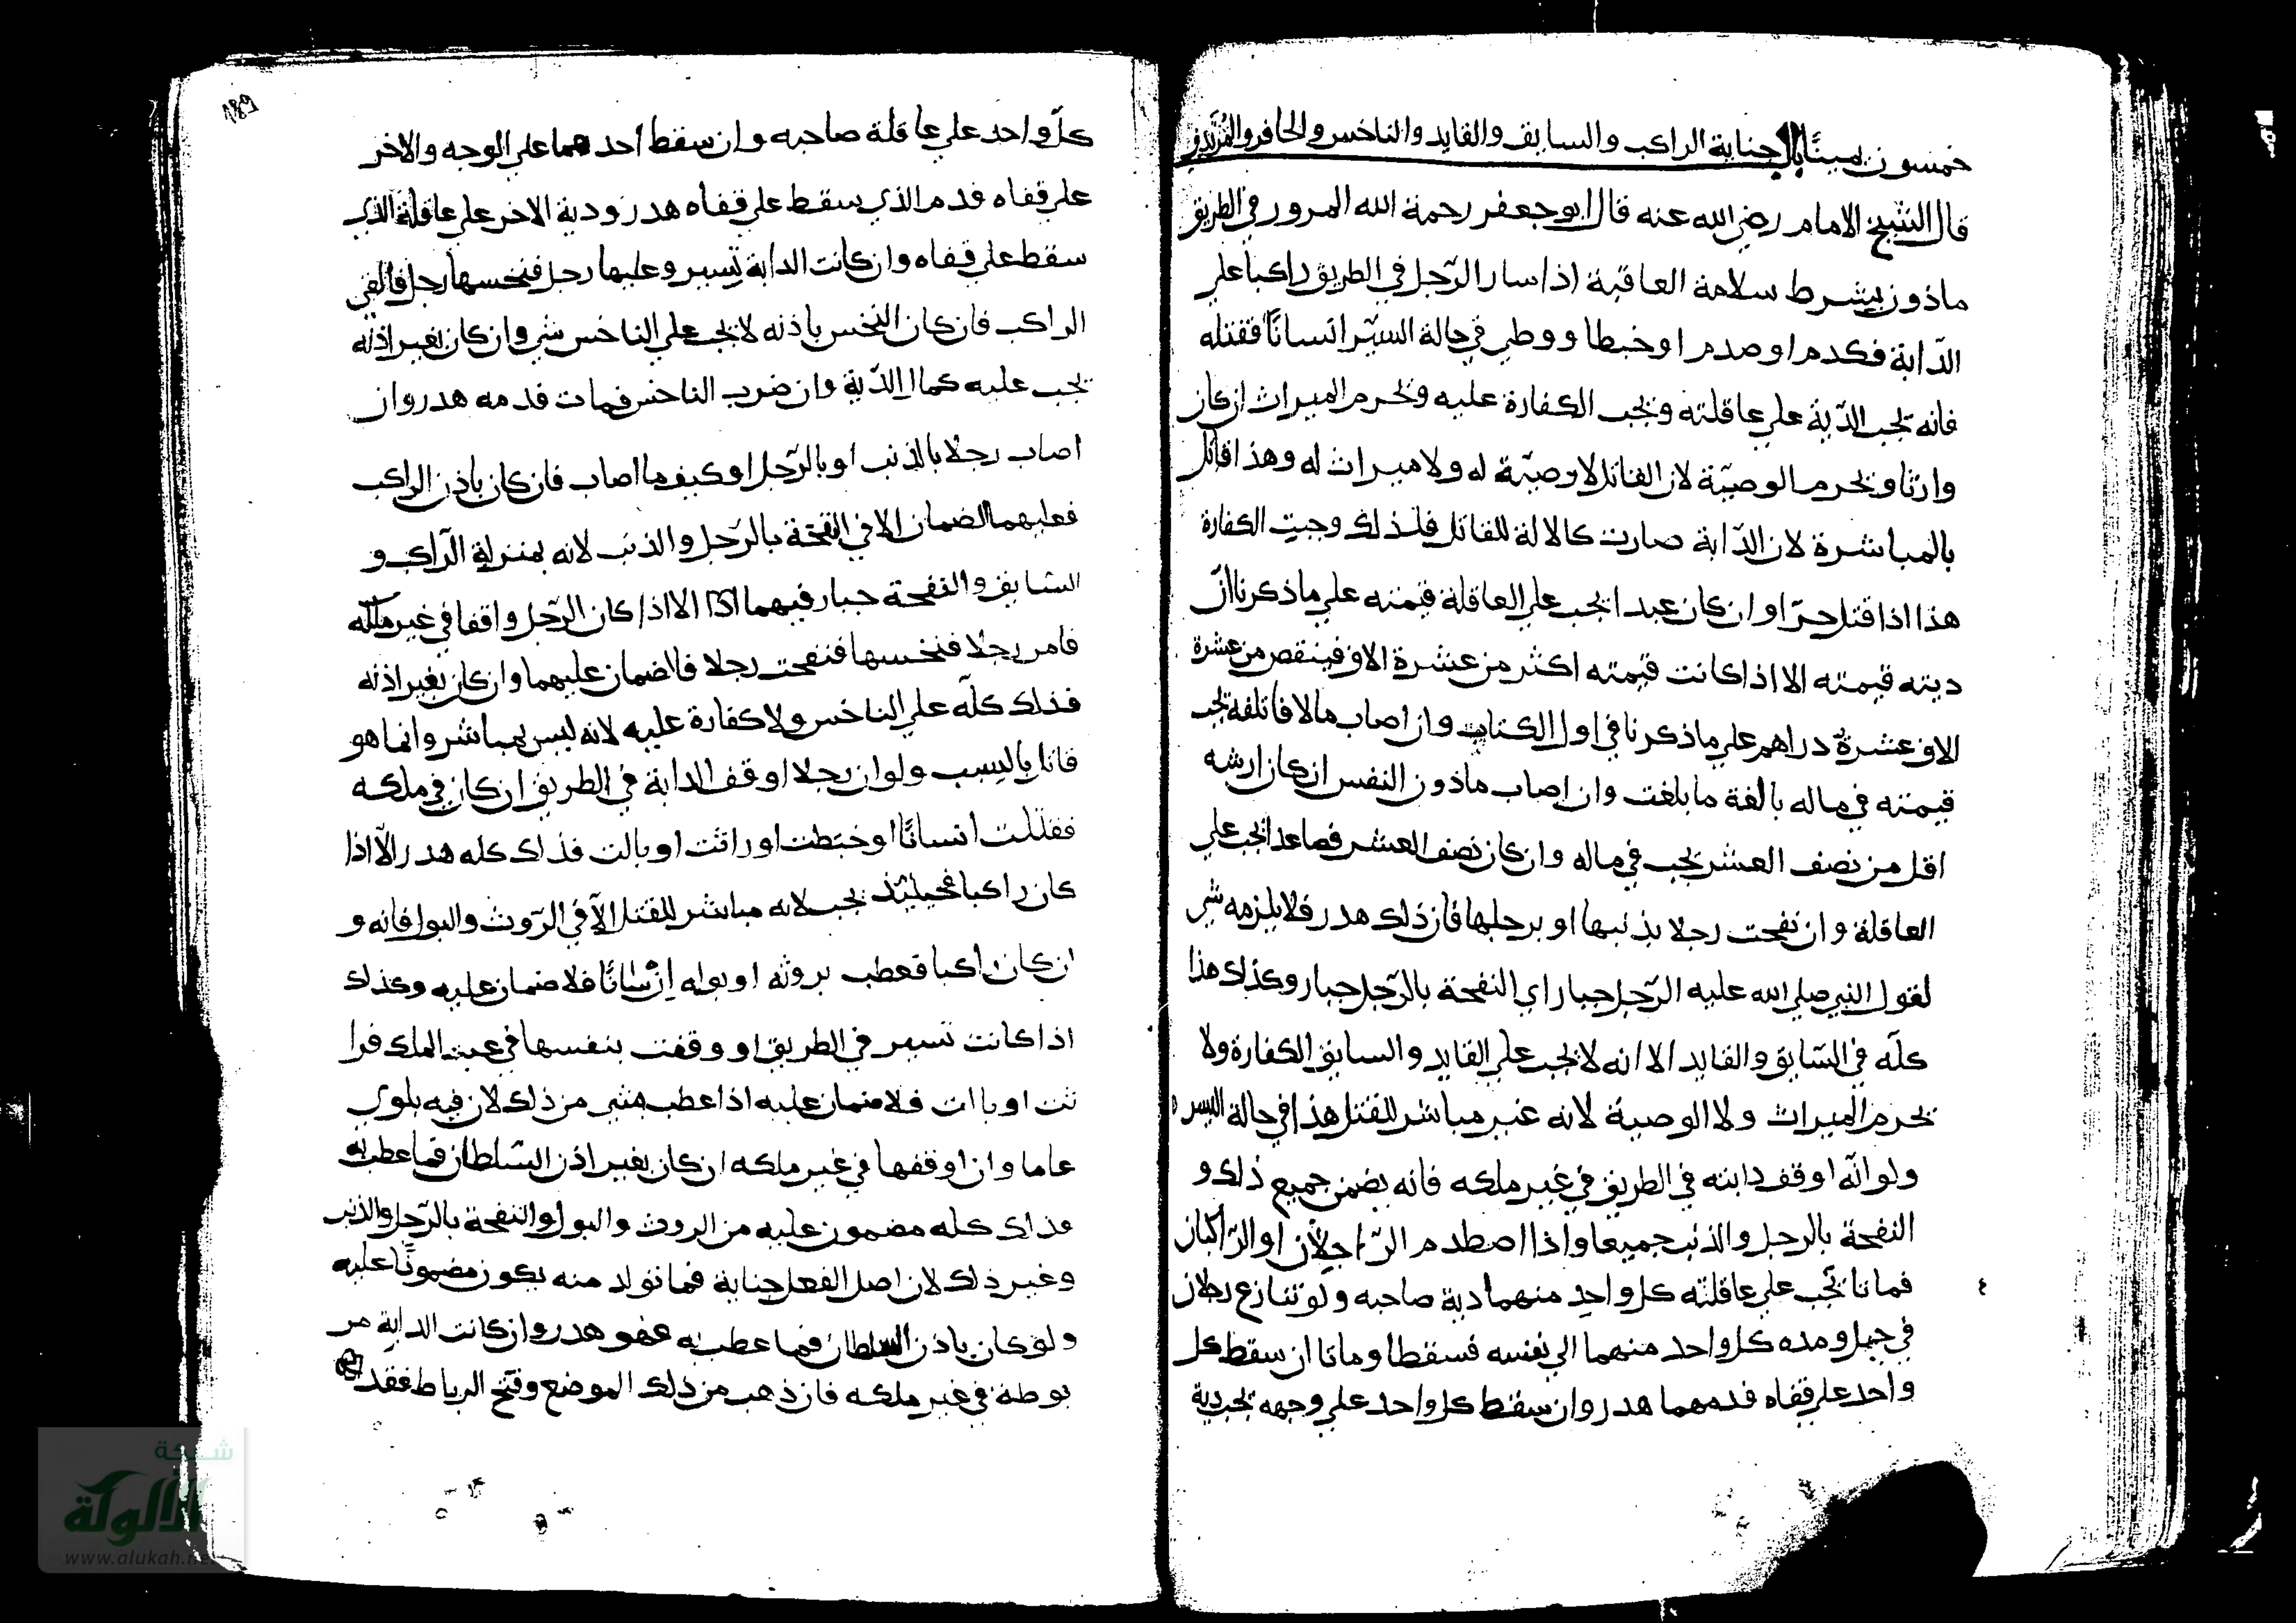 خمسون يمينًا باب جناية الراكب والسايق والقايد والناخس والحافر والمرتدف
قال الشيخ الامام رضي الله عنه قال ابو جعفر رحمة الله المرور في الطريق
ماذون بشرط سلامة العاقبة اذا سار الرّجل في الطريق راكبا علي
الدّابة فكدم او صدم او خبطا ووطي في حالة السّير انسانًا فقتله
فانه تجب الدّية علي عاقلته وتجب الكفارة عليه وتحرم الميراث ان كان
وارثا ويحرم الوصيّة لان القاتل لا وصيّة له ولا ميراث له وهذا قاتل
بالمباشرة لان الدّابة صارت كالالة للقاتل فلذلك وجبت الكفارة
هذا اذا قتل حرّا وان كان عبدا يجب علي العاقلة قيمته علي ما ذكرنا انّ
ديته قيمته الا اذا كانت قيمته اكثر من عشرة الاف فينقص من عشرة
الاف عشرة دراهم علي ما ذكرنا في اول الكتاب وان اصاب مالا فاتلفه تجب
قيمته في ماله بالغة ما بلغت وان اصاب مادون النفس ان كان ارشه
اقل من نصف العشر يجب في ماله وان كان نصف العشر فصاعدا يجب علي
العاقلة وان نفحت رجلا بذنبها او برجلها فان ذلك هدر فلا يلزمه شي
لقول النبي صلي الله عليه الرّجل جبار اي النفحة بالرّجل جبار وكذلك هذا
كلّه في السّايق والقايد الا انه لا يجب علي القايد والسايق الكفارة ولا
يحرم الميراث ولا الوصية لانه غير مباشر للقتل هذا في حالة السير
ولو انّه اوقف دابته في الطريق في غير ملكه فانه يضمن جميع ذلك و
النفحة بالرجل والذنب جميعا واذا اصطدم الرّاجلان او الرّاكبان
فماتا تجب علي عاقلته كل واحد منهما دية صاحبه ولو تنازع رجلان
في حبل ومده كل واحد منهما الي نفسه فسقطا وماتا ان سقط كل
واحد علي قفاه فدمهما هدر وان سقط كل واحد علي وجهه تجب دية
189
كلّ واحد علي عاقلة صاحبه وان سقط احدهما علي الوجه والاخر
علي قفاه فدم الذي سقط علي قفاه هدر ودية الاخر علي عاقلة الذي
سقط علي قفاه وان كانت الدابة تسير وعليها رجل فنخسها رجل فالقي
الراكب فان كان النخس باذنه لا يجب علي الناخس شي وان كان بغير اذنه
يجب عليه كمال الدّية وان ضرب الناخس فمات فدمه هدر وان
اصاب رجلا بالذنب او بالرّجل او كيف ما اصاب فان كان باذن الراكب
فعليهما الضمان الا في النفحة بالرّجل والذنب لانه بمنزلة الرّاكب و
السّايق والنفحة جبار فيهما الا اذا كان الرّجل واقفا في غير ملكه
فامر رجلا فنخسها فنفحت رجلا فالضمان عليهما وان كان بغير اذنه
فذلك كلّه علي الناخس ولا كفارة عليه لانه ليس بمباشر وانما هو
قاتل بالسبب ولو ان رجلا اوقف الدابة في الطريق ان كان في ملكه
فقتلت انسانًا او خبطت او راثت او بالت فذلك كله هدر الّا اذا
كان راكبا فحينئذ يجب لانه مباشر للقتل الّا في الرّوث والبول فانه و
ان كان راكبا فعطب بروثه او بوله انسانًا فلا ضمان عليه وكذلك
اذا كانت تسير في الطريق او وقفت بنفسها في غير الملك فرا
ثت او باات فلا ضمان عليه اذا عطب بشي من ذلك لان فيه بلوي
عاما وان اوقفها في غير ملكه ان كان بغير اذن السّلطان فما عطب به
فذلك كله مضمون عليه من الروث والبول والنفحة بالرّجل والذنب
وغير ذلك لان اصل الفعل جناية فما تولد منه يكون مضمونًا عليه
ولو كان باذن السلطان فما عطب به فهو هدر وان كانت الدابة مر
بوطة في غير ملكه فان ذهب من ذلك الموضع وفتح الرباط فقد
شبكة
الألوكة
www.alukah.net